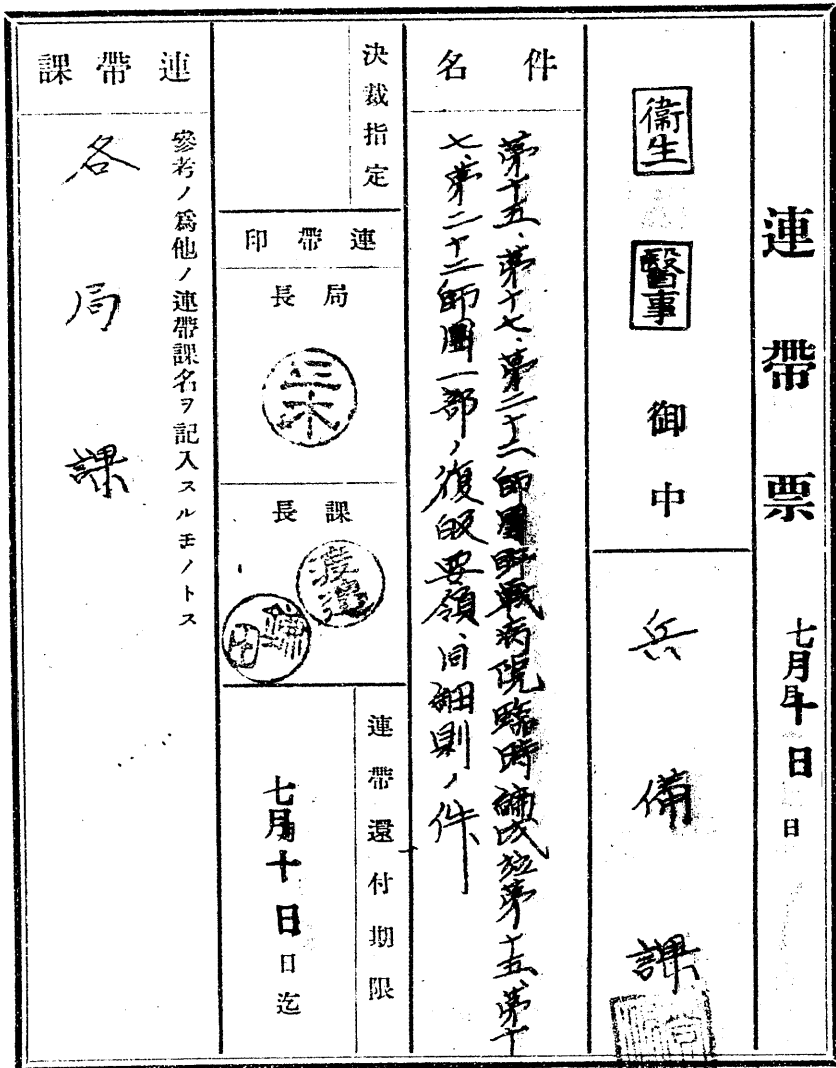 連帶票
七月十日
日
衞生
醫事
御中
兵備課
件名
第十五、第十七、第二十二師團野戰病院臨時編成竝第十五、第十
七、第二十二師團一部ノ復帰要領同細則ノ件
決裁指定
連帶印
局長
三木
課長
渡邊
連帶還付期限
七月十日
日迄
連帶課
參考ノ爲他ノ連帶課名ヲ記入スルモノトス
各局課